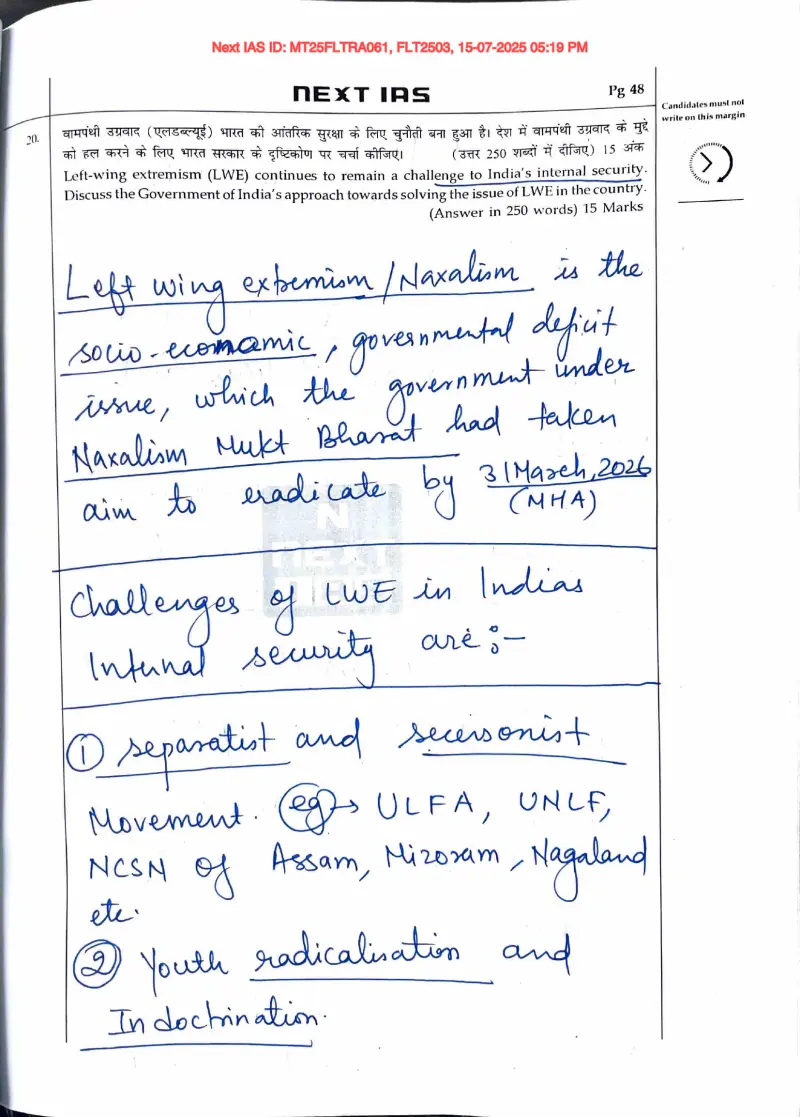 Next IAS ID: MT25FLTRA061, FLT2503, 15-07-2025 05:19 PM
NEXT IAS
Pg 48
Candidates must not
write on this margin
20.
वामपंथी उग्रवाद (एलडब्ल्यूई) भारत की आंतरिक सुरक्षा के लिए चुनौती बना हुआ है। देश में वामपंथी उग्रवाद के मुद्दे
को हल करने के लिए भारत सरकार के दृष्टिकोण पर चर्चा कीजिए। (उत्तर 250 शब्दों में दीजिए) 15 अंक
Left-wing extremism (LWE) continues to remain a challenge to India's internal security.
Discuss the Government of India's approach towards solving the issue of LWE in the country.
(Answer in 250 words) 15 Marks
Left wing extremism/Naxalism is the
socio-economic, governmental deficit
issue, which the government under
Naxalism Mukt Bharat had taken
aim to eradicate by 31 March, 2026
(MHA)
N
NEXT
IAS
Challenges of LWE in Indias
Internal security are:-
① separatist and secessonist
Movement. eg→ ULFA, UNLF,
NCSN of Assam, Mizoram, Nagaland
etc.
② Youth radicalisation and
Indoctrination.